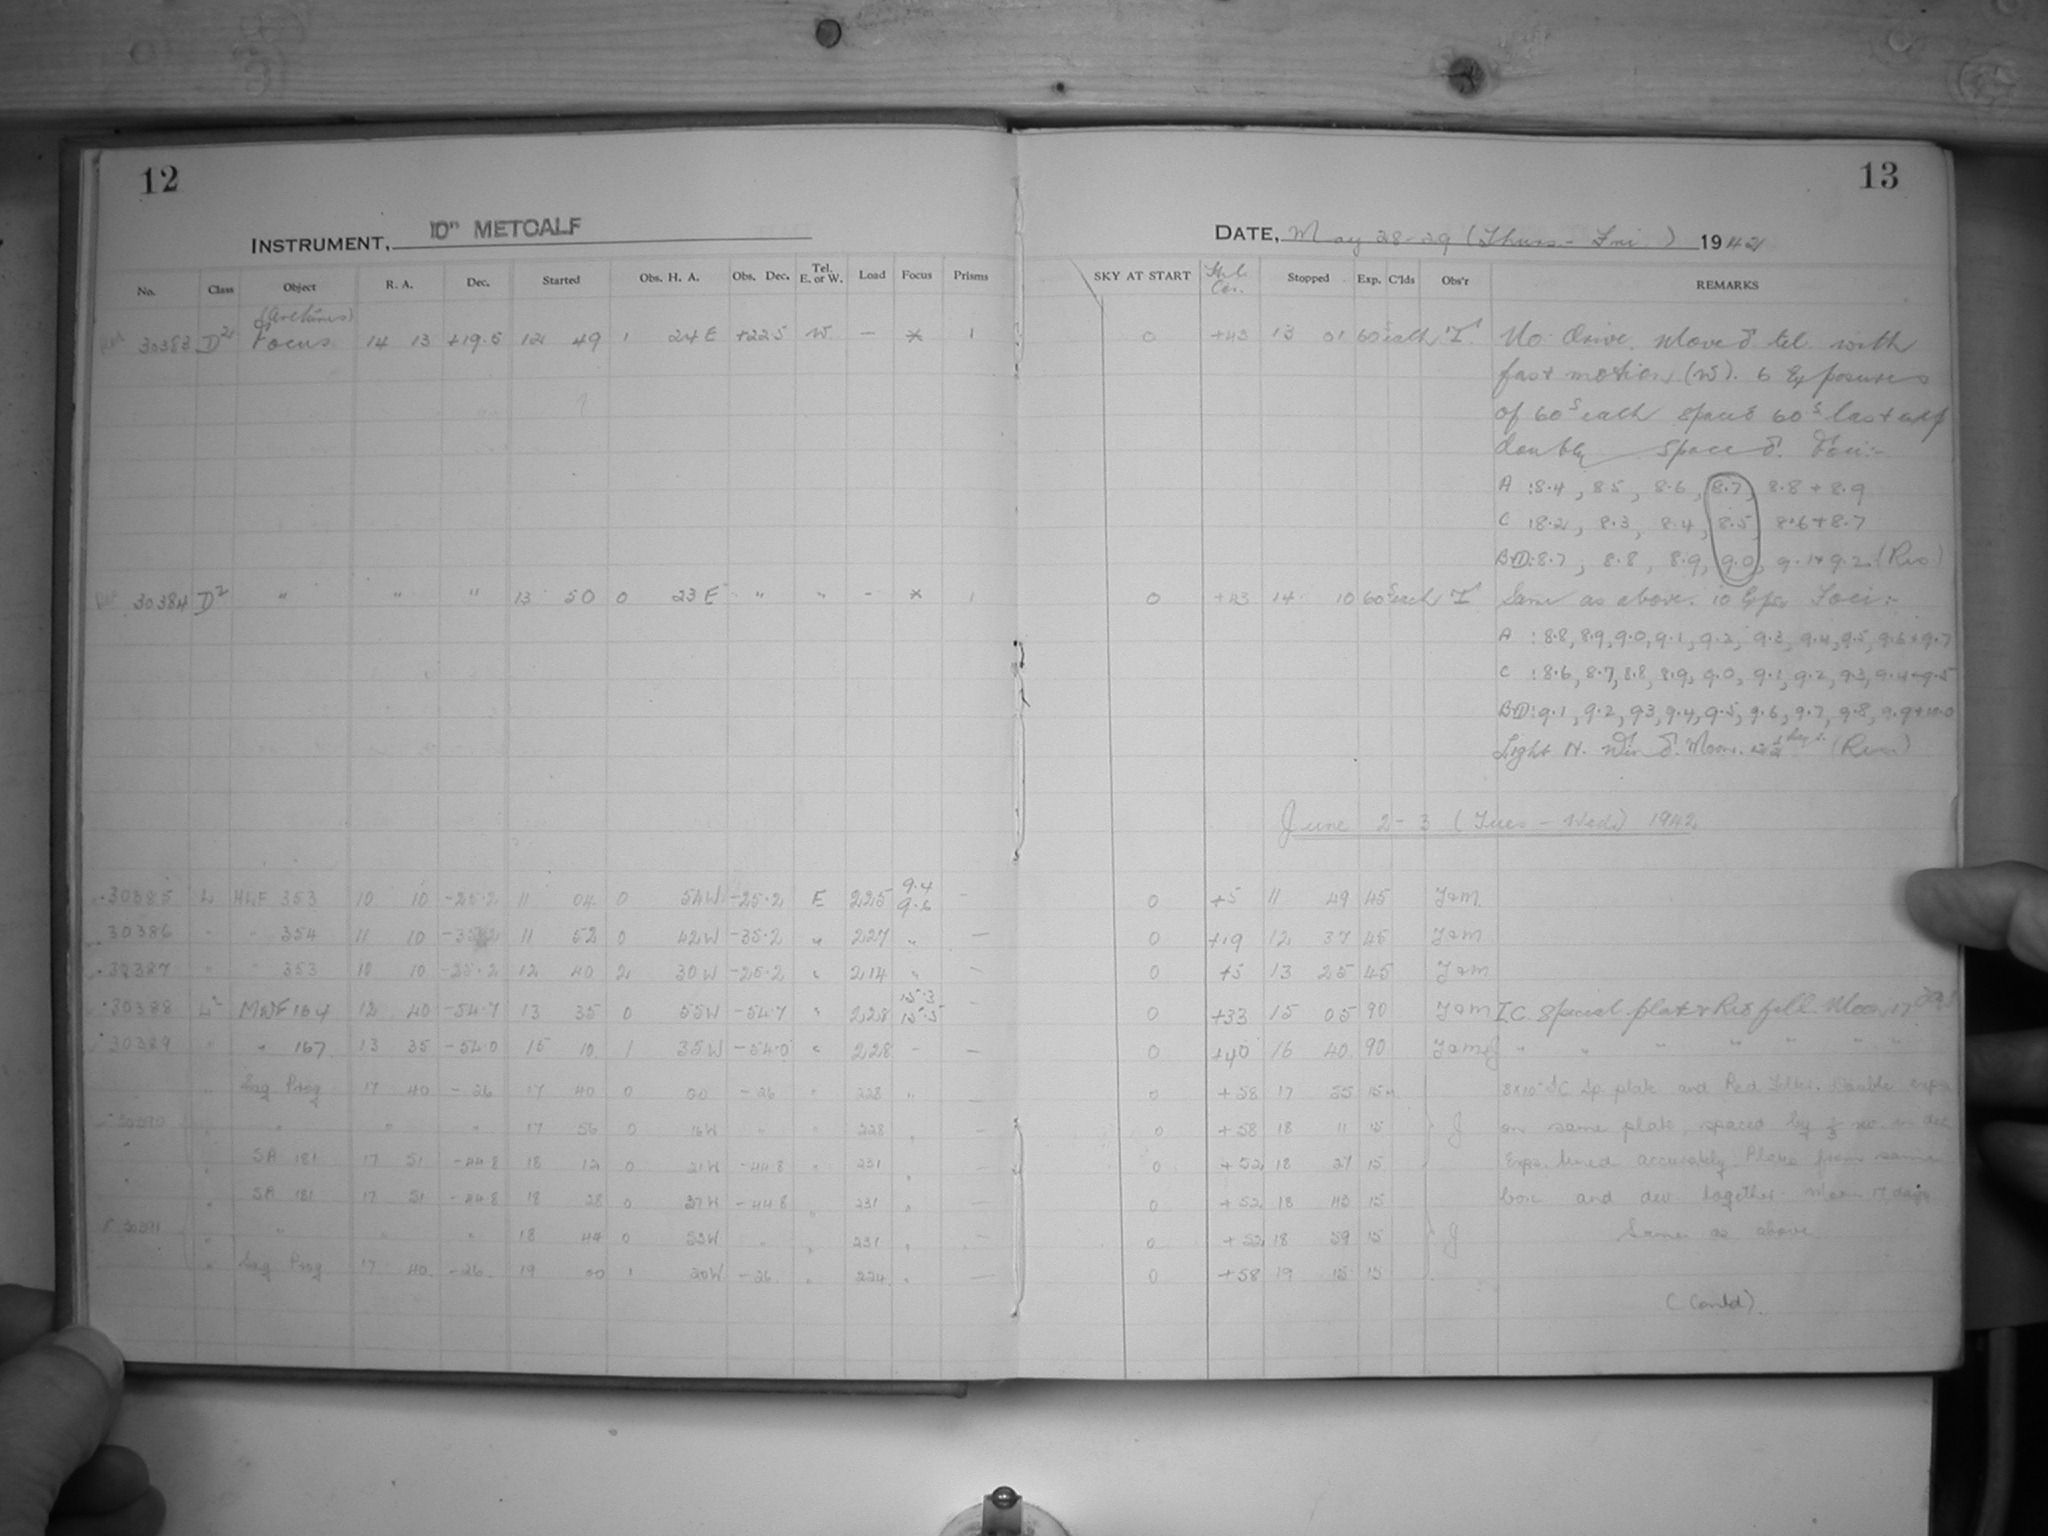 12
13
INSTRUMENT, 10" METCALF
DATE, May 28-29 (Thurs - Fri) 1942
No. Class Object R. A. Dec. Started Obs. H. A. Obs. Dec. Tel. E. or W. Load Focus Prisms SKY AT START Stopped Exp. C'lds Obs'r REMARKS
(Arcturus)
30383 D2 Focus 14 13 +19.5 12 49 1 24 E +22.5 W - * 1 0 +43 13 01 60s each No drive. Moved tel. with
fast motion (W). 6 Exposures
of 60s each spaced 60s last exp
doubly spaced. Foci:-
A : 8.4, 8.5, 8.6, 8.7, 8.8 + 8.9
C : 8.2, 8.3, 8.4, 8.5, 8.6 + 8.7
B+D: 8.7, 8.8, 8.9, 9.0, 9.1 + 9.2
30384 D2 " " " 13 50 0 23 E " " - * 1 0 +43 14 10 60s each Same as above. 10 Exps. Foci:-
A : 8.8, 8.9, 9.0, 9.1, 9.2, 9.3, 9.4, 9.5, 9.6 + 9.7
C : 8.6, 8.7, 8.8, 8.9, 9.0, 9.1, 9.2, 9.3, 9.4 + 9.5
B+D: 9.1, 9.2, 9.3, 9.4, 9.5, 9.6, 9.7, 9.8, 9.9 + 10.0
Light N. Wind. Moon
June 2-3 (Tues - Wed) 1942
30385 L 353 10 10 -25.2 11 04 0 54W -25.2 E 225 9.4 - 0 +5 11 49 45
30386 " " 354 11 10 -35.2 11 52 0 42W -35.2 " 227 " - 0 +19 12 37 45
30387 " " 353 10 10 -25.2 12 40 2 30W -25.2 " 214 " - 0 +5 13 25 45
30388 MWF 164 12 40 -54.7 13 35 0 55W -54.7 " 228 - 0 +33 15 05 90 I.C. Special plate & Red fill. Moon 17 days
30389 " " 167 13 35 -54.0 15 10 1 35W -54.0 " 228 - 0 +40 16 40 90 " " " " " "
Sag Prog 17 40 -26 17 40 0 00 -26 " 228 " - 0 +58 17 55 15 8x10 IC Sp. plate and Red Filter. Double expo
30390 " " " " 17 56 0 16W " " 228 " - 0 +58 18 11 15 J on same plate, spaced by 1/3 in dec
SA 181 17 51 -44.8 18 12 0 21W -44.8 " 231 " - 0 +52 18 27 15 Exps. timed accurately. Plates from same
SA 181 17 51 -44.8 18 28 0 37W -44.8 " 231 " - 0 +52 18 43 15 box and dev. together. Moon 17 days
30391 " " " " 18 44 0 53W " " 231 " - 0 +52 18 59 15 J Same as above
" Sag Prog 17 40 -26 19 00 1 20W -26 " 224 " - 0 +58 19 15 15
(Contd).